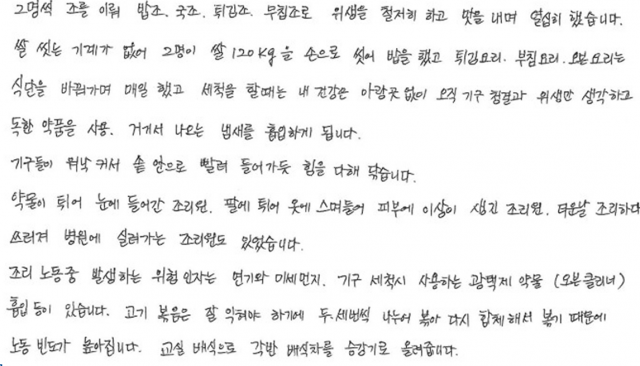 2명씩 조를 이뤄 밥조. 국조. 튀김조. 무침조로 위생을 철저히 하고 맛을 내며 열심히 했습니다.
쌀 씻는 기계가 없어 2명이 쌀 120kg을 손으로 씻어 밥을 했고 튀김요리. 부침요리. 오븐요리는
식단을 바꿔가며 매일 했고 세척을 할때는 내 건강은 아랑곳 없이 오직 기구 청결과 위생만 생각하고
독한 약품을 사용. 거기서 나오는 냄새를 흡입하게 됩니다.
기구들이 워낙 커서 솥 안으로 빨려 들어가듯 힘을 다해 닦습니다.
약물이 튀어 눈에 들어간 조리원. 팔에 튀어 옷에 스며들어 피부에 이상이 생긴 조리원. 더운날 조리하다
쓰러져 병원에 실려가는 조리원도 있었습니다.
조리 노동중 발생하는 위험 인자는 연기와 미세먼지. 기구 세척시 사용하는 광택제 약물 (오븐클리너)
흡입 등이 있습니다. 고기 볶음은 잘 익혀야 하기에 두.세번씩 나누어 볶아 다시 합체해서 볶기 때문에
노동 빈도가 높아집니다. 교실 배식으로 각반 배식차를 승강기로 올려줍니다.